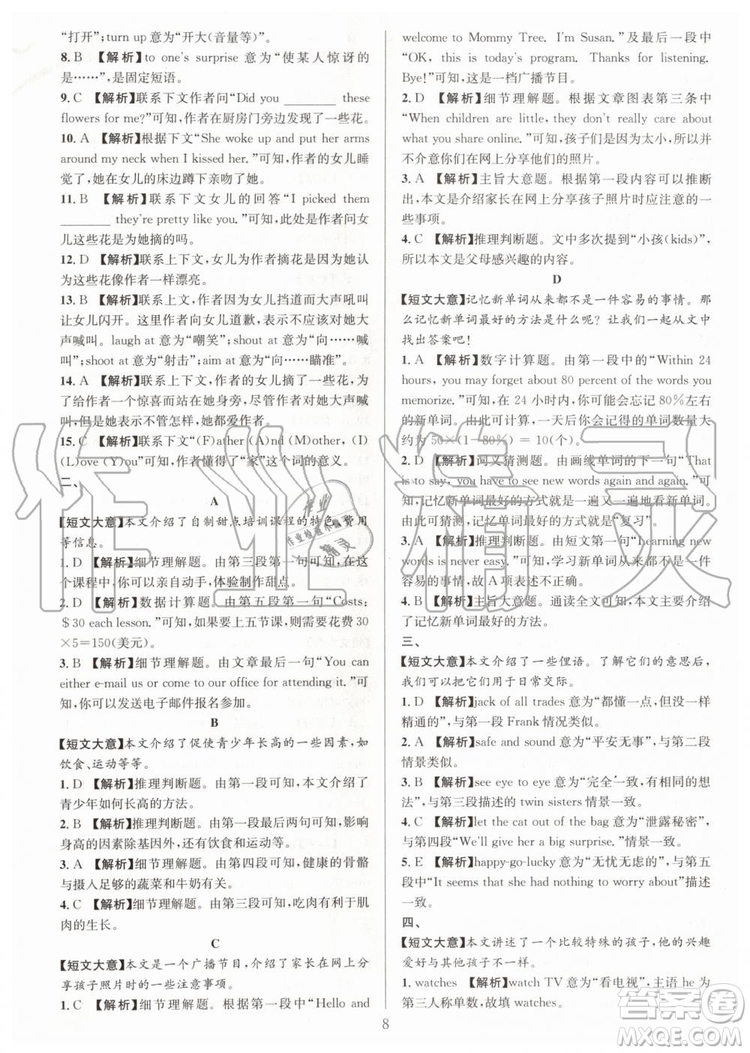 “打开”;turn up 意为“开大(音量等)”。
8. B 【解析】to one's surprise 意为“使某人惊讶的
是……”,是固定短语。
9. C 【解析】联系下文作者问“Did you ________ these
flowers for me?”可知,作者在厨房门旁边发现了一些花。
10. A 【解析】根据下文“She woke up and put her arms
around my neck when I kissed her. ”可知,作者的女儿睡
觉了,她在女儿的床边蹲下亲吻了她。
11. B 【解析】联系下文女儿的回答“I picked them
________ they're pretty like you. ”可知,此处是作者问女
儿这些花是为她摘的吗。
12. D 【解析】联系上下文,女儿摘花是因为她认为
这些花像作者一样漂亮。
13. B 【解析】联系上文作者因为女儿挡道而大声吼叫
让女儿闪开。这里作者向女儿道歉,表示不应该对她大
声喊叫。laugh at 意为“嘲笑”;shout at 意为“对……喊
叫”;shoot at 意为“射击”;aim at 意为“瞄准”。
14. A 【解析】联系上文,女儿摘了作者最喜欢的花为了
给作者一个惊喜而站在她旁边,尽管作者对她大声喊
叫,但是她表示不管怎样,她都爱作者。
15. C 【解析】联系下文“(F)ather (A)nd (M)other, (I)
(L)ove (Y)ou”可知,作者懂得了“家”这个词的意义。
二、
A
【短文大意】本文介绍了自制甜点培训课程的特色、费用
等信息。
1. C 【解析】细节理解题。由第三段第一句可知,在
这个课程中,你可以自己动手,体验制作甜点。
2. D 【解析】数据计算题。由第五段第一句“Costs:
$ 30 each lesson. ”可知,如果要上五节课,则需花费 30
×5=150(美元)。
3. B 【解析】细节理解题。由文章最后一句“You can
either e-mail us or come to our office for attending it. ”可
知,你可以发送电子邮件报名参加。
B
【短文大意】本文介绍了促使青少年长高的一些因素,如
饮食、运动等等。
1. D 【解析】推理判断题。由第一段可知,本文介绍了
青少年长高的方法。
2. D 【解析】推理判断题。由第一段可知,影响我们身
高的因素除基因外,还有饮食和运动等。
3. A 【解析】细节理解题。由第二段可知,健康的骨骼
与摄入足够的蔬菜和牛奶有关。
4. C 【解析】细节理解题。由第三段可知,吃肉有利于肌
肉的生长。
C
【短文大意】本文是一个广播节目,介绍了家长在网上分
享孩子照片时的一些注意事项。
1. C 【解析】细节理解题。根据第一段中“Hello and
welcome to Mommy Tree. I'm Susan. ”和最后一段中
“OK, that's today's program. Thanks for listening.
Bye!”可知,这是一档广播节目。
2. D 【解析】细节理解题。根据文章图表第三条中
“When children are little, they don't really care about
what you share online. ”可知,孩子们因为太小,所以并
不在意你们在网上分享他们的照片。
3. A 【解析】主旨大意题。根据第一段内容可以推断
出,本文是介绍家长在网上分享孩子照片时要注意的一
些事项。
4. C 【解析】推理判断题。文中多次提到“小孩(kids)”,
所以本文是父母感兴趣的内容。
D
【短文大意】记忆新单词从来都不是一件容易的事情。那么
记忆新单词最好的方法是什么呢?你可以尝试着从文中
找出答案哦!
1. A 【解析】数字计算题。由第一段中的“Within 24
hours, you may forget about 80 percent of the words you
memorize. ”可知,在 24 小时内,你可能会忘记 80%左右
的新单词。由此计算,一天后你会记得的单词数量大
约为 50×(1-80%)=10(个)。
2. D 【解析】词义猜测题。由画线单词的下一句“That
is to say, you have to see new words again and again. ”可
知,记忆新单词最好的方式就是一遍又一遍地看它们,
由此可猜测,记忆新单词最好的方式就是“复习”。
3. A 【解析】细节理解题。由短文第一句“Learning new
words is never easy. ”可知,学习新单词从来不是一件
容易的事情。故 A 项表述不正确。
4. B 【解析】主旨大意题。通读全文可知,本文介绍
了记忆新单词最好的方法。
三、
【短文大意】本文介绍了一些俚语。了解它们的意思后,
我们可以把它们用于日常交际。
1. D 【解析】jack of all trades 意为“都懂一点,但没一样
精通的”,与第一段的 Frank 情况类似。
2. A 【解析】safe and sound 意为“平安无事”,与第二段
情景类似。
3. B 【解析】see eye to eye 意为“完全一致,有同样看
法”,与第三段描述的 twin sisters 情景一致。
4. C 【解析】let the cat out of the bag 意为“泄露秘密”,
与第四段“We'll give her a big surprise. ”情景一致。
5. E 【解析】happy-go-lucky 意为“无忧无虑的”,与第五
段中“It seems that she had nothing to worry about”描述
一致。
四、
【短文大意】本文讲述了一个比较特殊的孩子,他的兴趣
爱好与众不同。
1. watches 【解析】watch TV 意为“看电视”,主语 he 为
第三人称单数,故填 watches。
8
作业精灵
答案圈